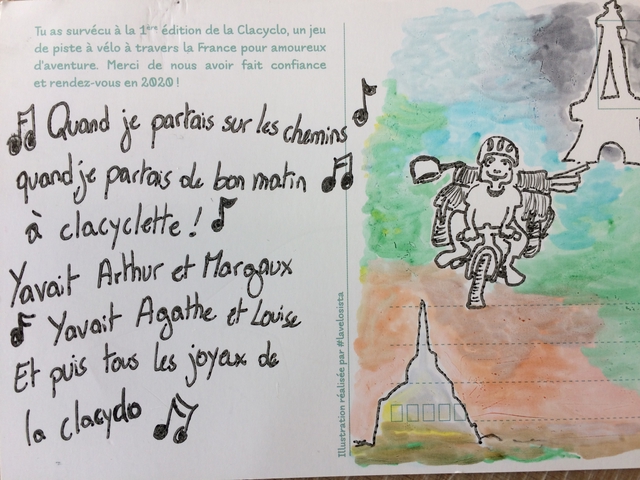 Tu as survécu à la 1ère édition de la Clacyclo, un jeu
de piste à vélo à travers la France pour amoureux
d'aventure. Merci de nous avoir fait confiance
et rendez-vous en 2020 !
Quand je partais sur les chemins
quand je partais de bon matin
à clacyclette !
Yavait Arthur et Margaux
Yavait Agathe et Louise
Et puis tous les joyaux de
la clacyclo
Illustration réalisée par #lavelosista